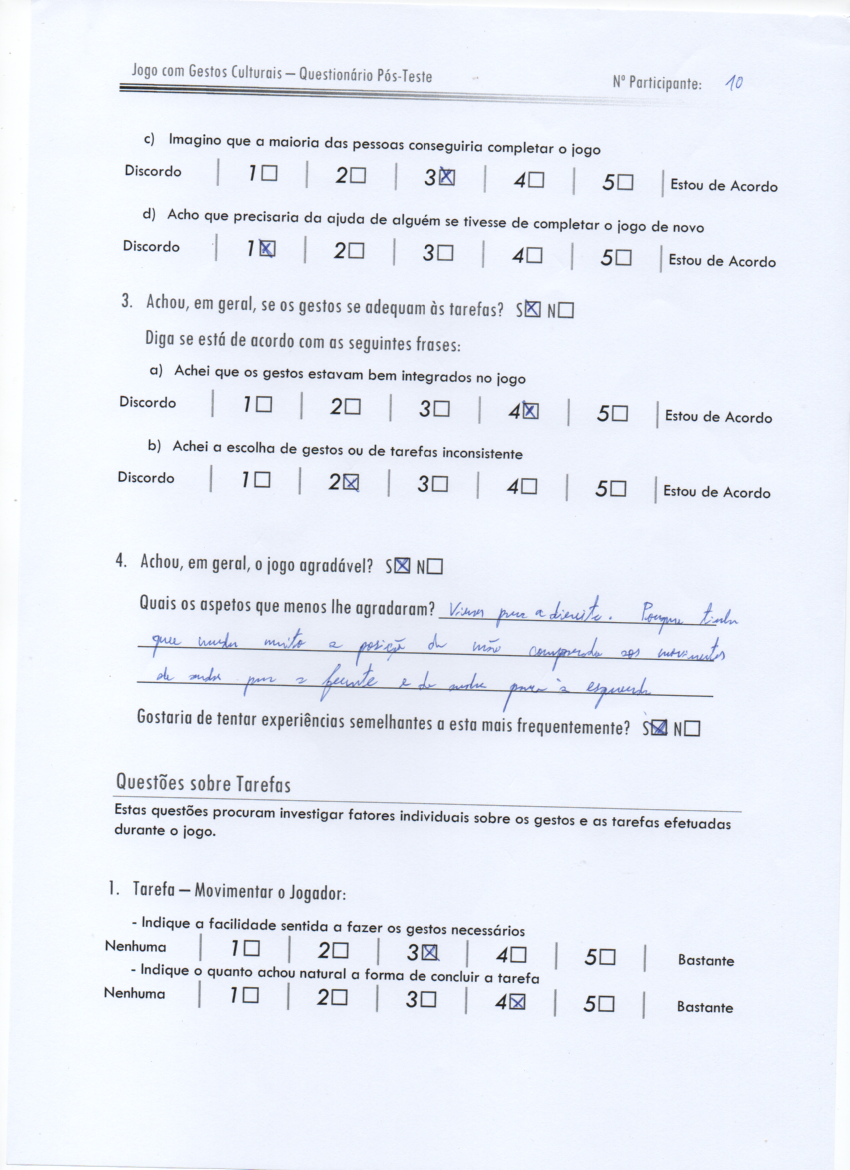 Jogo com Gestos Culturais – Questionário Pós-Teste Nº Participante: 10
c) Imagino que a maioria das pessoas conseguiria completar o jogo
Discordo | 1☐ | 2☐ | 3☒ | 4☐ | 5☐ | Estou de Acordo
d) Acho que precisaria da ajuda de alguém se tivesse de completar o jogo de novo
Discordo | 1☒ | 2☐ | 3☐ | 4☐ | 5☐ | Estou de Acordo
3. Achou, em geral, se os gestos se adequam às tarefas? S☒ N☐
Diga se está de acordo com as seguintes frases:
a) Achei que os gestos estavam bem integrados no jogo
Discordo | 1☐ | 2☐ | 3☐ | 4☒ | 5☐ | Estou de Acordo
b) Achei a escolha de gestos ou de tarefas inconsistente
Discordo | 1☐ | 2☒ | 3☐ | 4☐ | 5☐ | Estou de Acordo
4. Achou, em geral, o jogo agradável? S☒ N☐
Quais os aspetos que menos lhe agradaram? Virar para a direita. Porque tinha
que mudar muito a posição da mão comparando aos movimentos
de andar para a frente e de andar para à esquerda
Gostaria de tentar experiências semelhantes a esta mais frequentemente? S☒ N☐
Questões sobre Tarefas
Estas questões procuram investigar fatores individuais sobre os gestos e as tarefas efetuadas
durante o jogo.
1. Tarefa – Movimentar o Jogador:
- Indique a facilidade sentida a fazer os gestos necessários
Nenhuma | 1☐ | 2☐ | 3☒ | 4☐ | 5☐ | Bastante
- Indique o quanto achou natural a forma de concluir a tarefa
Nenhuma | 1☐ | 2☐ | 3☐ | 4☒ | 5☐ | Bastante